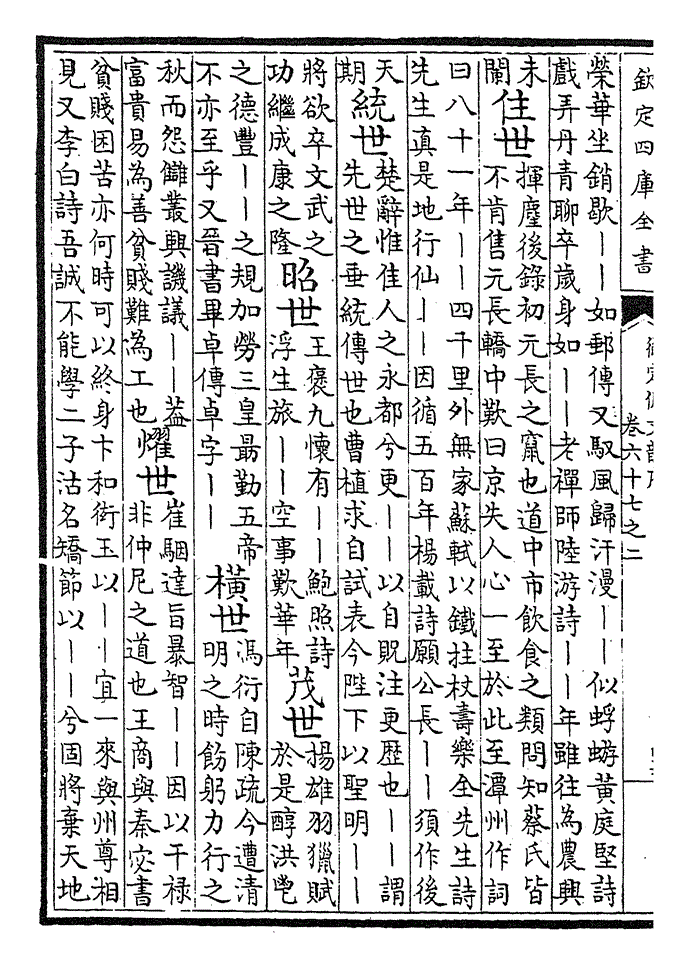 欽定四庫全書
卷六十七之二
榮華坐銷歇丨丨如郵傳又馭風歸汗漫丨丨似蜉蝣黃庭堅詩
戲弄丹青聊卒歲身如丨丨老禪師陸游詩丨丨年雖往為農興
未
闌
住世
揮麈後錄初元長之竄也道中市飲食之類問知蔡氏皆
不肯售元長轎中歎曰京失人心一至於此至潭州作詞
曰八十一年丨丨四千里外無家蘇軾以鐵拄杖壽樂全先生詩
先生真是地行仙丨丨因循五百年楊載詩願公長丨丨須作後
天
期
統世
楚辭惟佳人之永都兮更丨丨以自貺注更歴也丨丨謂
先世之垂統傳世也曹植求自試表今陛下以聖明丨丨
將欲卒文武之
功繼成康之隆
昭世
王褒九懷有丨丨鮑照詩
浮生旅丨丨空事歎華年
茂世
揚雄羽獵賦
於是醇洪鬯
之德豐丨丨之規加勞三皇朂勤五帝
不亦至乎又晉書畢卓傳卓字丨丨
橫世
馮衍自陳疏今遭清
明之時飭躬力行之
秋而怨讎叢興譏議丨丨葢
富貴易為善貧賤難為工也
燿世
崔駰達旨暴智丨丨因以干祿
非仲尼之道也王商與秦宓書
貧賤困苦亦何時可以終身卞和衒玉以丨丨宜一來與州尊相
見又李白詩吾誠不能學二子沽名矯節以丨丨兮固將棄天地